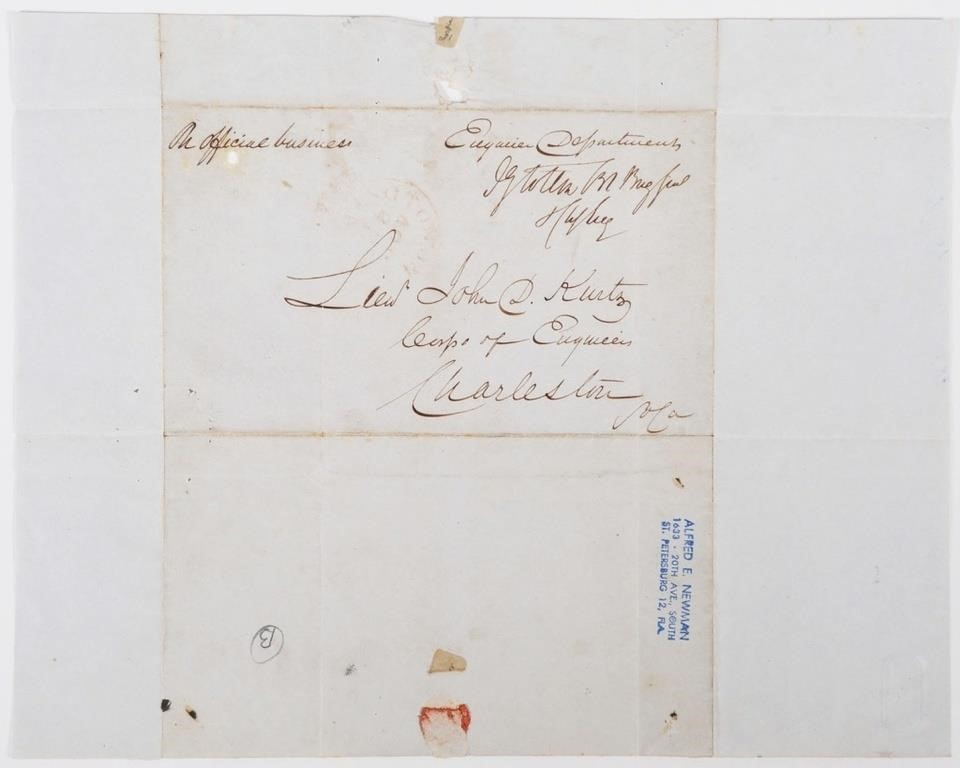 On official business
Engineer Department
J G Totten Bt Brig Genl
Lieut John D. Kurtz
Corps of Engineers
Charleston
So Ca
ALFRED E. NEWMAN
1633 - 20TH AVE., SOUTH
ST. PETERSBURG 12, FLA.
B